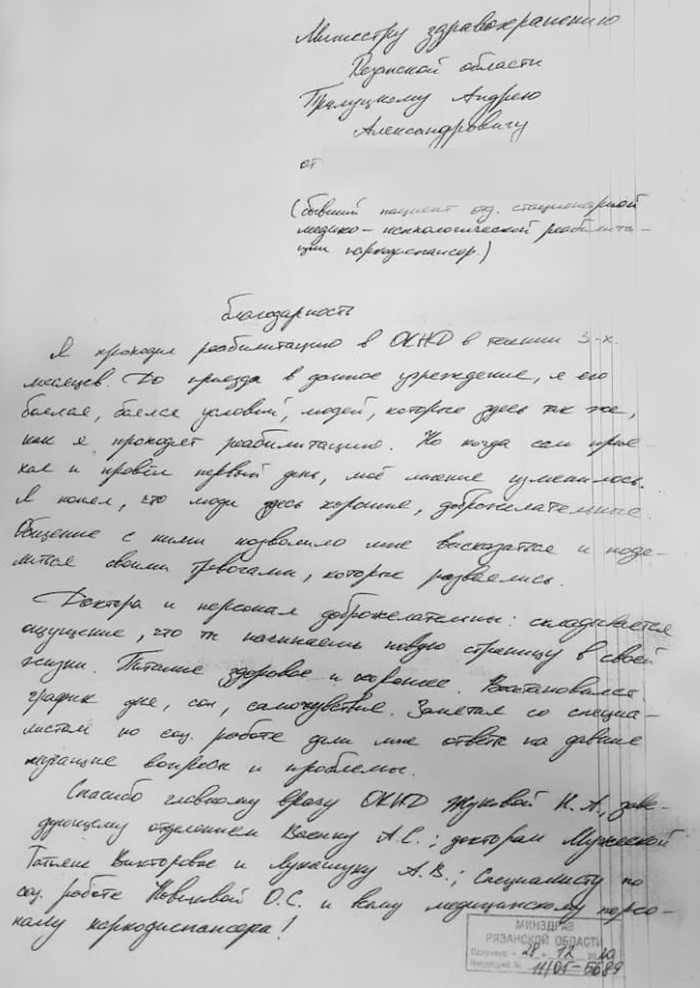 Министру здравоохранению
Рязанской области
Прилуцкому Андрею
Александровичу
от
(бывший пациент отд. стационарной
медико-психологической реабилита-
ции наркодиспансер.)
благодарность
Я проходил реабилитацию в ОКНД в течении 3-х
месяцев. До приезда в данное учреждение, я его
боялся, боялся условий, людей, которые здесь так же,
как я проходят реабилитацию. Но когда сам прие-
хал и провёл первый день, моё мнение изменилось.
Я понял, что люди здесь хорошие, доброжелательные.
Общение с ними позволило мне высказаться и поде-
литься своими тревогами, которые развеялись.
Доктора и персонал доброжелательны: складывается
ощущение, что ты начинаешь новую страницу в своей
жизни. Питание здоровое и хорошее. Восстановился
график дня, сон, самочувствие. Занятия со специа-
листом по соц. работе дали мне ответы на давние
мучащие вопросы и проблемы.
Спасибо главному врачу ОКНД Жуковой Н.А., заве-
дующему отделением А.С.; докторам
Татьяне Викторовне и Лукашуку А.В.; Специалисту по
соц. работе О.С. и всему медицинскому персо-
налу наркодиспансера!
МИНЗДРАВ
РЯЗАНСКОЙ ОБЛАСТИ
Получено « 28 » 12 20
Входящий № 11/05-5689